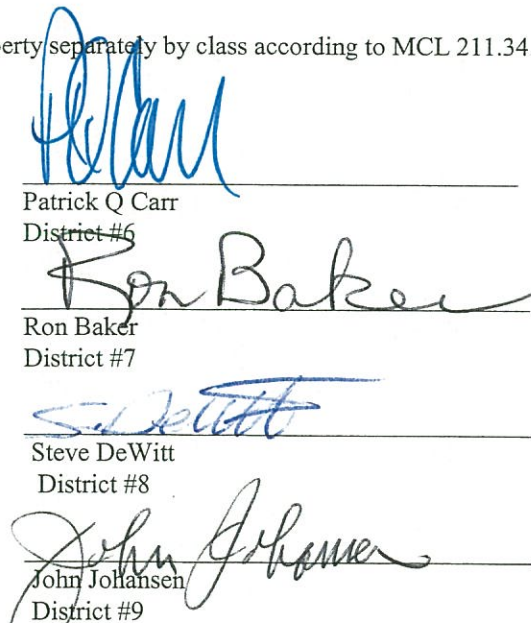 erty separately by class according to MCL 211.34
PQCarr
Patrick Q Carr
District #6
Ron Baker
Ron Baker
District #7
S. DeWitt
Steve DeWitt
District #8
John Johansen
John Johansen
District #9